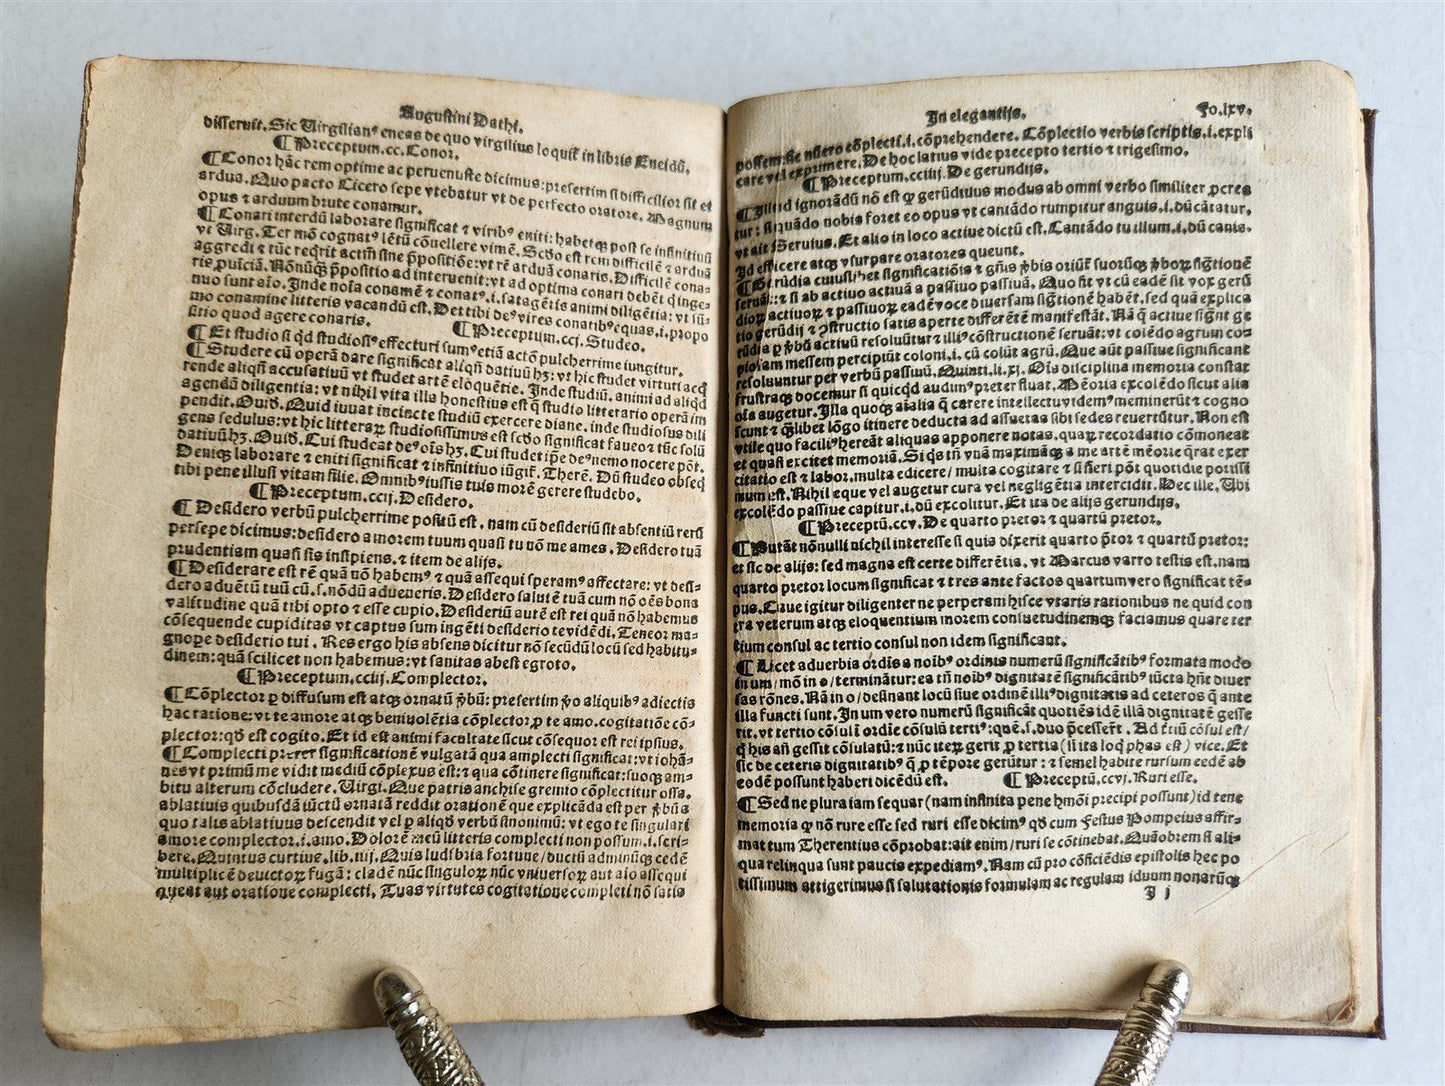 Augustini Dathi.
disseruit. Sic Virgilianꝰ eneas de quo virgilius loquit̃ in libris Eneidū.
¶Preceptum.cc. Conor.
¶Conor hāc rem optime ac peruenuste dicimus: presertim si difficilior sit et
ardua. Quo pacto Cicero sepe vtebatur vt de perfecto oratore. Magnum
opus ⁊ arduum brute conamur.
¶Conari interdū laborare significat ⁊ viribꝰ eniti: habetqꝫ post se infinitiuū
vt Virg. Ter mōō cognatꝰ lētū cōuellere vimē. Scdo est rem difficilē ⁊ arduā
aggredi ⁊ tūc reqrit actm̄ sine p̄positiōe: vt rē arduā conaris. Difficilē cona-
ris ꝓuiciā. Nōnūqꝫ p̄positio ad interuenit: vt ad optima conari debēt q̇ inge-
nuo sunt aīo. Inde nota conamē ⁊ conatꝰ .i. satagētis animi diligētia: vt sū-
mo conamine litteris vacandū est. Det tibi deꝰ vires conatibꝰ equas .i. propo
sitio quod agere conaris. ¶Preceptum.ccj. Studeo.
¶Et studio si qd studiosiꝰ effecturi sumꝰ etiā actō pulcherrime iungitur.
¶Studere cū operā dare significat aliqñ datiuū hꝫ: vt hic studet virtuti acq̄
rende aliqñ accusatiuū vt studet artē eloquētie. Inde studiū. animi ad aliqd
agendū diligentia: vt nihil vita illa honestius est q̄ studio litterario operā im
pendit. Ouid. Quid iuuat incincte studiū exercere diane. inde studiosus dili
gens sedulus: vt hic litteraꝝ studiosissimus est scdo significat faueo ⁊ tūc solū
datiuū hꝫ. Ouid. Cui studeat deꝰ oīs hꝫ. Cui studet ip̄e deꝰ nemo nocere pōt.
Deniqꝫ laborare ⁊ eniti significat ⁊ infinitiuo iūgit̃. Therē. Dū studeo obseq̄
tibi pene illusi vitam filie. Omnibꝰ iussis tuis morē gerere studebo.
¶Preceptum.ccij. Desidero.
¶Desidero verbū pulcherrime positū est. nam cū desideriū sit absentiū rerū
persepe dicimus: desidero amorem tuum quasi tu nō me ames. Desidero tuā
prudentiam quasi sis insipiens. ⁊ item de alijs.
¶Desiderare est rē quā nō habemꝰ ⁊ quā assequi speramꝰ affectare: vt desi-
dero aduētū tuū cū .s. nōdū adueneris. Desidero salutē tuā cum nō oēs bona
valitudine quā tibi opto ⁊ esse cupio. Desideriū autē est rei quā nō habemus
cōsequende cupiditas vt captus sum ingēti desiderio te vidēdi. Teneor ma-
gnope desiderio tui. Res ergo his absens dicitur nō secūdū locū sed habitu-
dinem: quā scilicet non habemus: vt sanitas abest egroto.
¶Preceptum.cciij. Complector.
¶Cōplector ꝑ diffusum est atqꝫ ornatū ꝟbū: presertim ꝟo aliquibꝰ adiectis
hac ratione: vt te amore atqꝫ beniuolētia cōplector ꝓ te amo. cogitatiōe cō-
plector: qd est cogito. Et id est animi facultate sicut cōsequor est rei ipsius.
¶Complecti preter significationē vulgatā qua amplecti significat: vt iohā-
nes vt primū me vidit mediū cōplexus est: ⁊ qua cōtinere significat: suoqꝫ am-
bitu alterum cōcludere. Virgi. Que patris anchise gremio cōplectitur ossa.
ablatiuis quibusdā iūctū ornatā reddit orationē que explicāda est per ꝟbū a
quo talis ablatiuus descendit vel ꝑ aliqd verbū sinonimū: vt ego te singulari
amore complector .i. amo. Dolorē meū litteris complecti non possum .i. scri-
bere. Quintus curtius. lib. iiij. Quis ludibria fortune / ductū adminūqꝫ cedē
multiplicē deuictoꝝ fugā: cladē nūc singuloꝝ nūc vniuersoꝝ aut aīo assequi
queat aut oratione complecti. Tuas virtutes cogitatione completi nō satis
In elegantijs. Fo.lxv.
possem: siē nūero cōplecti .i. cōprehendere. Cōplectio verbis scriptis .i. expli
care vel exprimere. De hoc latius vide precepto tertio ⁊ trigesimo.
¶Preceptum.cciiij. De gerundijs.
¶Illud ignorādū nō est qꝫ gerūdiuius modus ab omni verbo similiter ꝓcrea
tur: si quādo nobis foret eo opus vt cantādo rumpitur anguis .i. dū cātatur.
vt ait Seruius. Et alio in loco actiue dictū est. Cantādo tu illum .i. dū canis.
Id efficere atqꝫ vsurpare oratores queunt.
¶Gerūdia cuiuslibet significatiōis ⁊ gn̄is ꝟbis oriūt̃ suorūqꝫ ꝟboꝝ sig̃tionē
seruāt: ⁊ si ab actiuo actiuā a passiuo passiuā. Quo fit vt cū eadē sit vox gerū
dioꝝ actiuoꝝ ⁊ passiuoꝝ eadē voce diuersam sig̃tionē habēt. sed quā explica
tio gerūdij ⁊ ↄstructio satis aperte differētē manifestāt. Nā q̄ actiue sig̃nt ge
rūdia ꝑ ꝟbū actiuū resoluūtur ⁊ illiꝰ cōstructionē seruāt: vt colēdo agrum co-
piosam messem percipiūt coloni .i. cū colūt agrū. Que aūt passiue significant
resoluuntur per verbū passiuū. Quinti. li. xj. Oīs disciplina memoria constat
frustraqꝫ docemur si quicqd audimꝰ preter fluat. Memoria excolēdo sicut alia
oīa augetur. Illa quoqꝫ aīalia q̄ carere intellectu videmꝰ meminerūt ⁊ cogno
scunt ⁊ q̄libet lōgo itinere deducta ad assuetas sibi sedes reuertūtur. Non est
vtile quo faciliꝰ hereāt aliquas apponere notas. quaꝝ recordatio cōmoneat
et quasi excitet memoriā. Si qs tn̄ vnā maximāqꝫ a me artē mēorie q̄rat exer
citatio est ⁊ labor. multa ediscere / multa cogitare ⁊ si fieri pōt quotidie potissi
mum est. Nihil eque vel augetur cura vel negligētia intercidit. Hec ille. Vbi
excolēdo passiue capitur .i. dū excolitur. Et ita de alijs gerundijs.
¶Preceptū.ccv. De quarto pretor ⁊ quartū pretor.
¶Putāt nōnulli nichil interesse si quis dixerit quarto p̄tor ⁊ quartū pretor:
et sic de alijs: sed magna est certe differētia. vt Marcus varro testis est. nam
quarto pretor locum significat ⁊ tres ante factos quartum vero significat tē-
pus. Caue igitur diligenter ne perperam hisce vtaris rationibus ne quid con
tra veterum atqꝫ eloquentium morem consuetudinemqꝫ faciamus quare ter
tium consul ac tertio consul non idem significant.
¶Licet aduerbia ordīs a noībꝰ ordinis numerū significātibꝰ formata modo
in um / mō in o / terminātur: ea tn̄ noībꝰ dignitatē significātibꝰ iūcta hn̄t diuer
sas rōnes. Nā in o / desinant locū siue ordinē illiꝰ dignitatis ad ceteros q̄ ante
illa functi sunt. In um vero numerū significāt quotiēs idē illā dignitatē gesse
rit. vt tertio cōsul ī ordīe cōsulū tertiꝰ: qūe .s. duo p̄cesserūt. Ad tiū cōsul est /
q̄ his añ gessit cōsulatū: ⁊ nūc iteꝝ gerit ꝓ tertia (si ita loq̄ phas est) vice. Et
sic de ceteris dignitatibꝰ q̄ ꝓ tēpore gerūtur: ⁊ semel habite rursum eedē ab
eodē possunt haberi dicēdū est. ¶Preceptū.ccvj. Ruri esse.
¶Sed ne plura iam sequar (nam infinita pene hmōi precipi possunt) id tene
memoria qꝫ nō rure esse sed ruri esse dicimꝰ qd cum Festus Pompeius affir-
mat tum Therentius cōprobat: ait enim / ruri se cōtinebat. Quāobrem si ali-
qua relinqua sunt paucis expediamꝰ. Nam cū pro cōficiēdis epistolis hec po
tissimum attigerimus si salutationis formulam ac regulam iduum nonarūqꝫ
I j